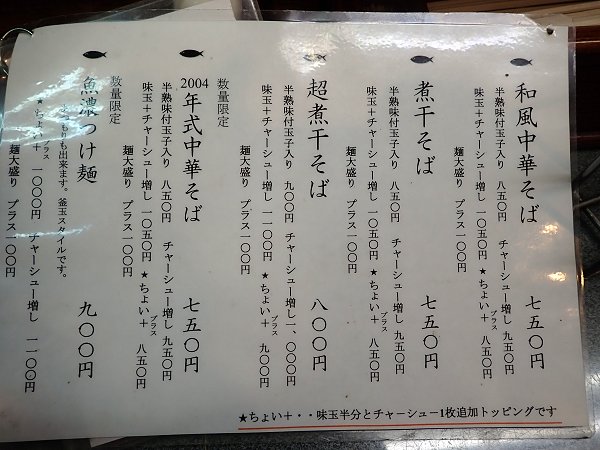 和風中華そば　七五〇円
半熟味付玉子入り　八五〇円　チャーシュー増し　九五〇円
味玉＋チャーシュー増し　一〇五〇円　★ちょい＋プラス　八五〇円
麺大盛り　プラス一〇〇円
煮干そば　七五〇円
半熟味付玉子入り　八五〇円　チャーシュー増し　九五〇円
味玉＋チャーシュー増し　一〇五〇円　★ちょい＋プラス　八五〇円
麺大盛り　プラス一〇〇円
超煮干そば　八〇〇円
半熟味付玉子入り　九〇〇円　チャーシュー増し　一、〇〇〇円
味玉＋チャーシュー増し　一一〇〇円　★ちょい＋プラス　九〇〇円
麺大盛り　プラス一〇〇円
数量限定
2004年式中華そば　七五〇円
半熟味付玉子入り　八五〇円　チャーシュー増し　九五〇円
味玉＋チャーシュー増し　一〇五〇円　★ちょい＋プラス　八五〇円
麺大盛り　プラス一〇〇円
数量限定
魚濃つけ麺　九〇〇円
あつもりも出来ます。釜玉スタイルです。
★ちょい＋プラス　一〇〇〇円　チャーシュー増し　一一〇〇円
麺大盛り　プラス一〇〇円
★ちょい＋・・味玉半分とチャーシュー1枚追加トッピングです